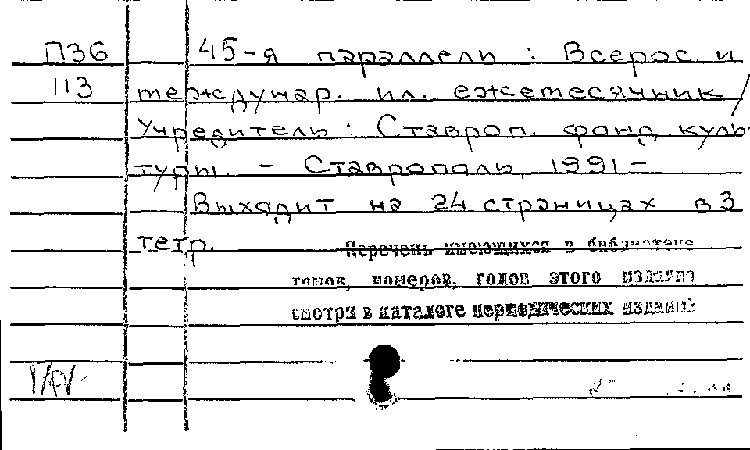 П36 45-я параллель : Всерос. и
113 междунар. ил. ежемесячник /
Учредитель : Ставроп. фонд куль-
туры. - Ставрополь, 1991 -
Выходит на 24 страницах в 3
тетр.
Перечень имеющихся в библиотеке
томов, номеров, годов этого издания
смотри в каталоге периодических изданий